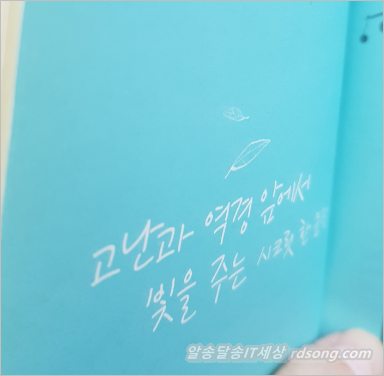 고난과 역경 앞에서
빛을 주는 시크릿 한
알쏭달쏭IT세상 rdsong.com